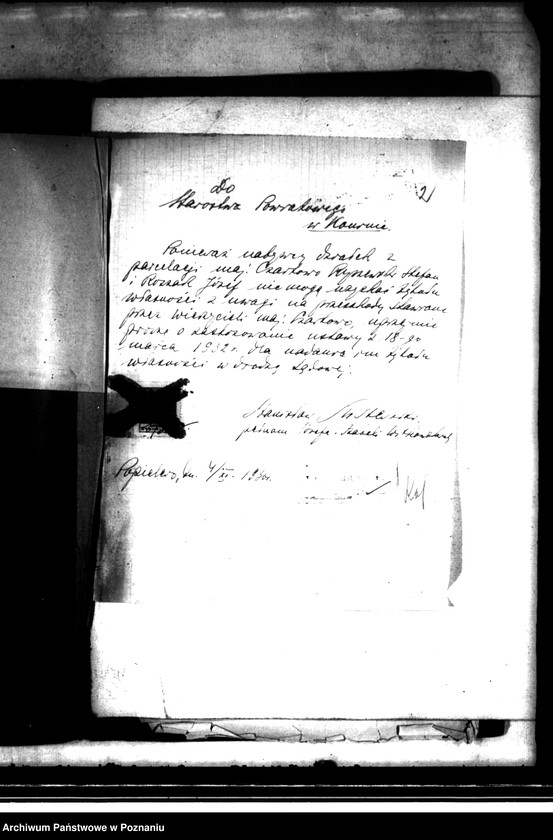 2)
Do
Starostwa Powiatowego
w Koninie.
Ponieważ nabywcy działek z
parcelacji maj. Czartowo Ryszewski Stefan
i Rozzak Józef nie mogą uzyskać tytułu
własności z uwagi na przeszkody stawiane
przez wierzycieli maj. Czartowo, uprzejmie
proszę o zastosowanie ustawy z 18-go
marca 1932 r. dla nadania im tytułu
własności w drodze sądowej.
Stanisław
pełnom. Józefa
Popielewo, dn. 4/XI. 193 r.
Archiwum Państwowe w Poznaniu